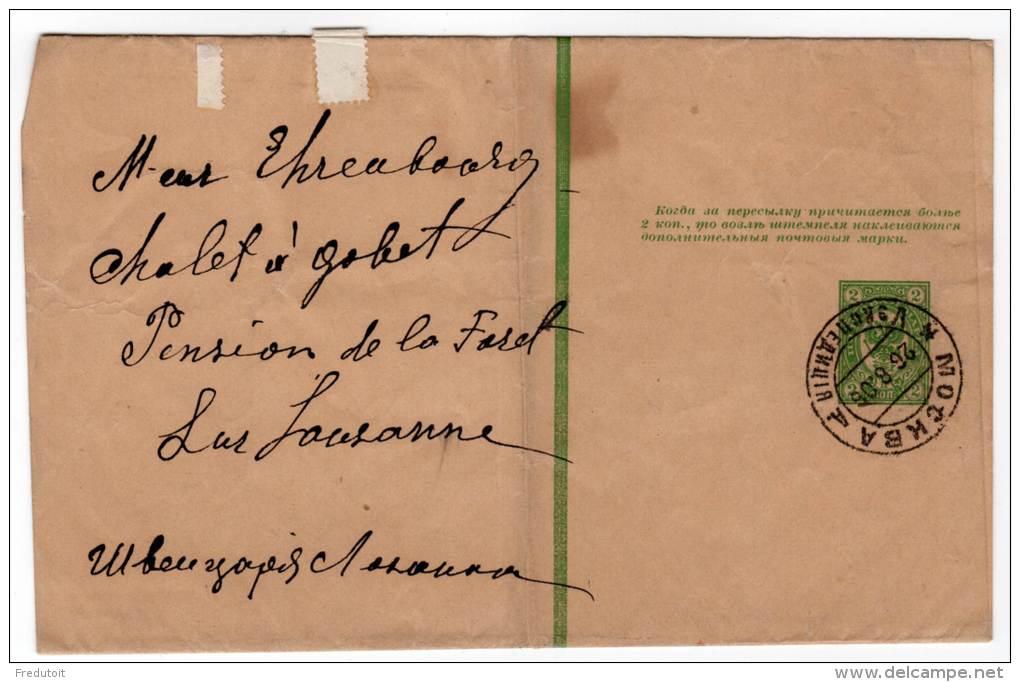 M-eur Ehrenbourg
Chalet à Gobet
Pension de la Foret
Sur Lausanne
Швейцарія Лозанна
Когда за пересылку причитается болѣе
2 коп., то возлѣ штемпеля наклеиваются
дополнительныя почтовыя марки.
2 2
2 КОП. 2
МОСКВА
ЭКСПЕДИЦІЯ
Fredutoit
www.delcampe.net